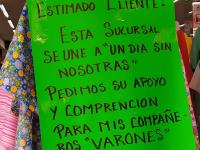 ESTIMADO CLIENTE:
ESTA SUCURSAL
SE UNE A "UN DIA SIN
NOSOTRAS"
PEDIMOS SU APOYO
Y COMPRENCION
PARA MIS COMPAÑE-
ROS "VARONES"